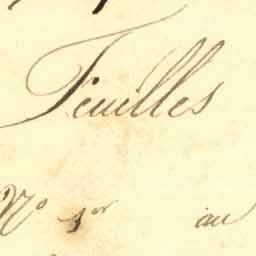 Feuilles
Nº 1er au